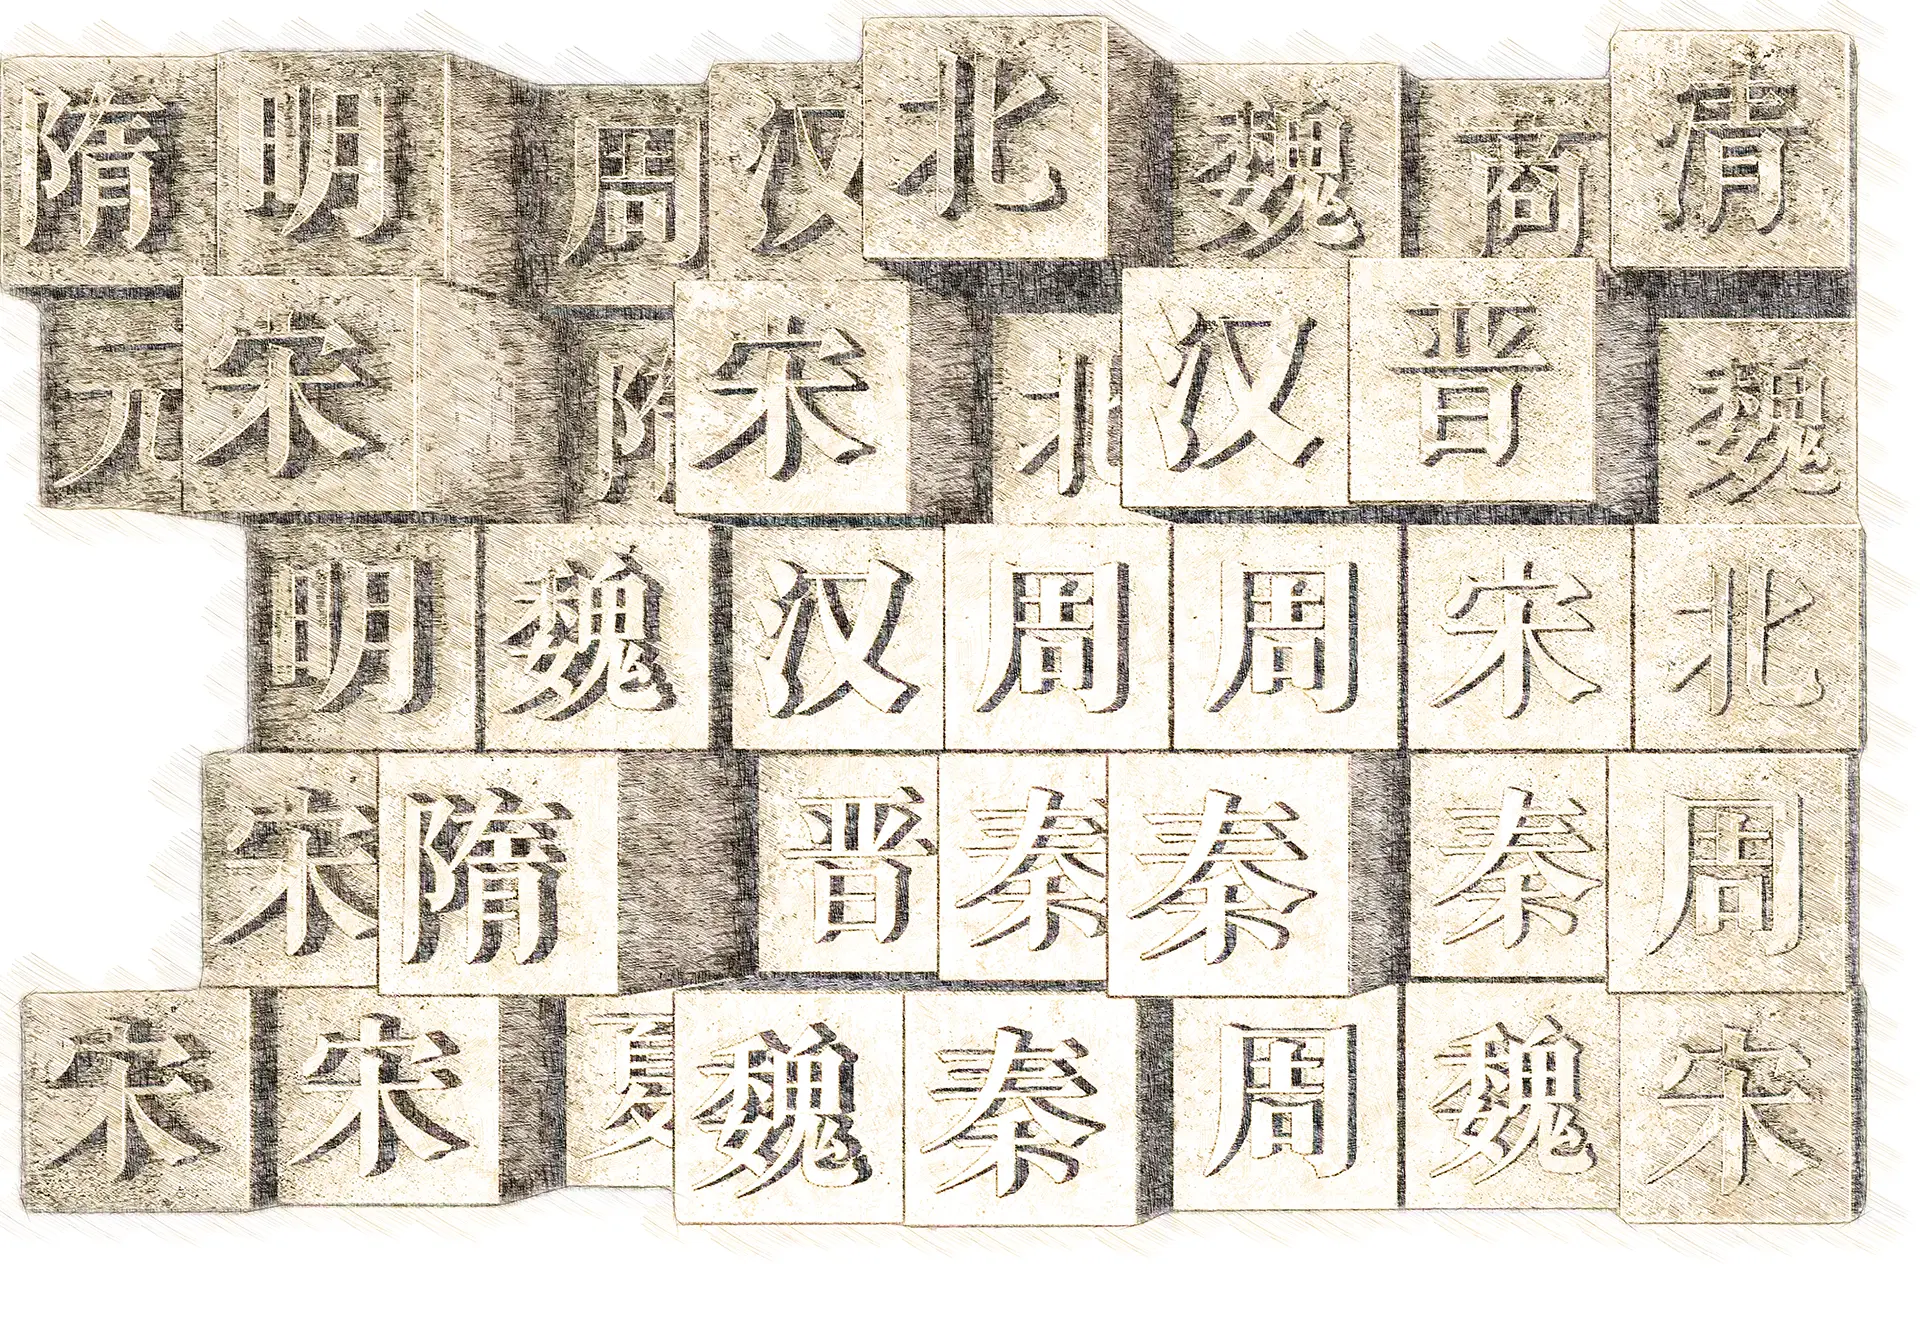 隋明周汉北魏商清
元宋隋宋北汉晋魏
明魏汉周周宋北
宋隋晋秦秦秦周
宋宋夏魏秦周魏宋